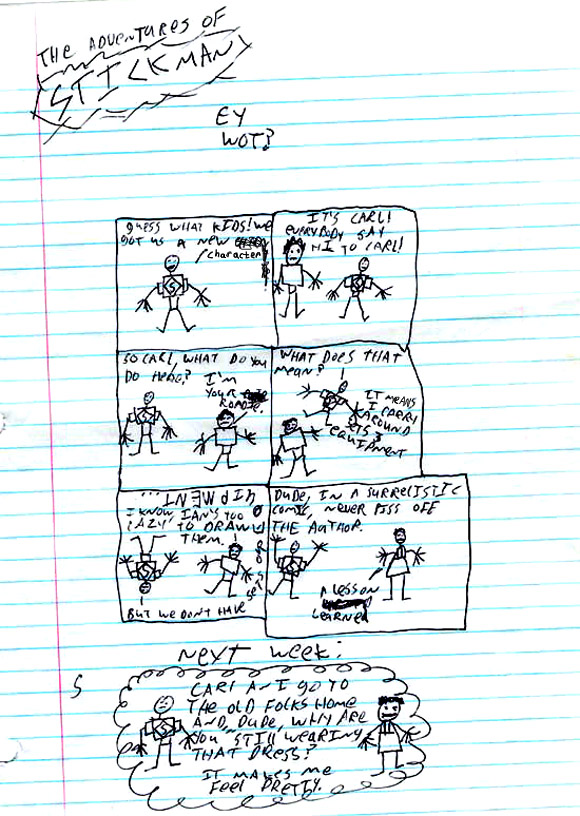 THE ADVENTURES OF
STICKMAN
EY
WOT?
GUESS WHAT KIDS! WE
GOT US A NEW
character
IT'S CARL!
EVERYBODY SAY
HI TO CARL!
SO CARL, WHAT DO YOU
DO HERE?
I'M
YOUR
ROADIE.
WHAT DOES THAT
MEAN?
IT MEANS
I CARRY
AROUND
SETS &
EQUIPMENT
BUT WE DON'T HAVE
SETS OR
EQUIPMENT...
I KNOW IAN'S TOO
LAZY TO DRAW
THEM.
DUDE, IN A SURREALISTIC
COMIC, NEVER PISS OFF
THE AUTHOR.
A LESSON
LEARNED
NEXT WEEK:
S
CARL AND I GO TO
THE OLD FOLKS HOME
AND, DUDE, WHY ARE
YOU STILL WEARING
THAT DRESS?
IT MAKES ME
FEEL PRETTY.